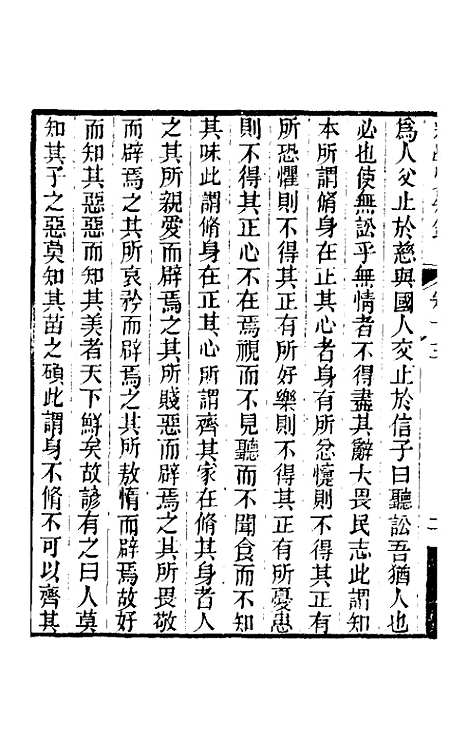 爲人父止於慈與國人交止於信子曰聽訟吾猶人也
必也使無訟乎無情者不得盡其辭大畏民志此謂知
本所謂脩身在正其心者身有所忿懥則不得其正有
所恐懼則不得其正有所好樂則不得其正有所憂患
則不得其正心不在焉視而不見聽而不聞食而不知
其味此謂脩身在正其心所謂齊其家在脩其身者人
之其所親愛而辟焉之其所賤惡而辟焉之其所畏敬
而辟焉之其所哀矜而辟焉之其所敖惰而辟焉故好
而知其惡惡而知其美者天下鮮矣故諺有之曰人莫
知其子之惡莫知其苗之碩此謂身不脩不可以齊其